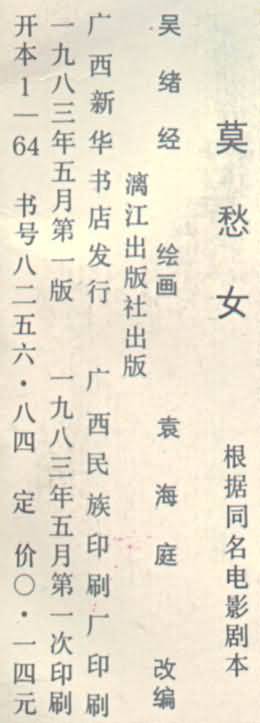 莫愁女 根据同名电影剧本
吴绪经 绘画 袁海庭 改编
漓江出版社出版
广西新华书店发行 广西民族印刷厂印刷
一九八三年五月第一版 一九八三年五月第一次印刷
开本1—64 书号八二五六·八四 定价〇·一四元